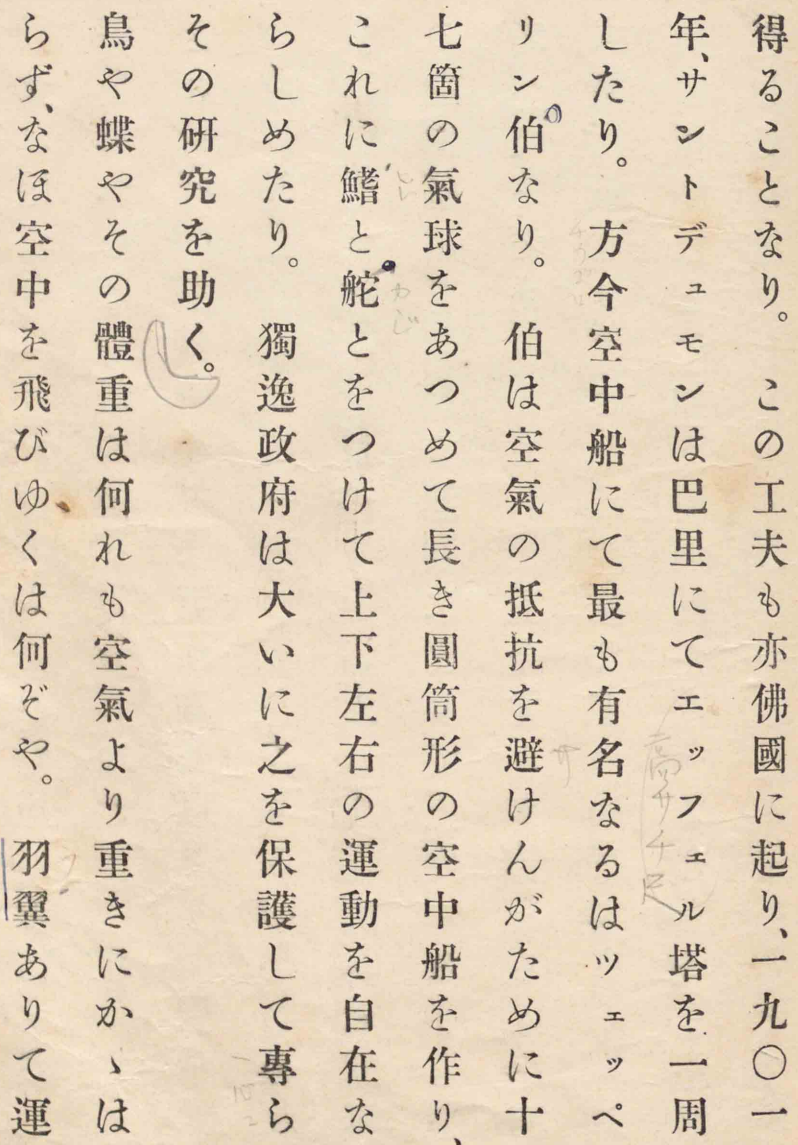 得ることなり。　この工夫も亦佛國に起り、一九〇一
年、サントデュモンは巴里にてエッフェル塔を一周
したり。　方今空中船にて最も有名なるはツェッペ
リン伯なり。　伯は空氣の抵抗を避けんがために十
七箇の氣球をあつめて長き圓筒形の空中船を作り、
これに鰭と舵とをつけて上下左右の運動を自在な
らしめたり。　獨逸政府は大いに之を保護して專ら
その研究を助く。
鳥や蝶やその體重は何れも空氣より重きにかゝは
らず、なほ空中を飛びゆくは何ぞや。　羽翼ありて運